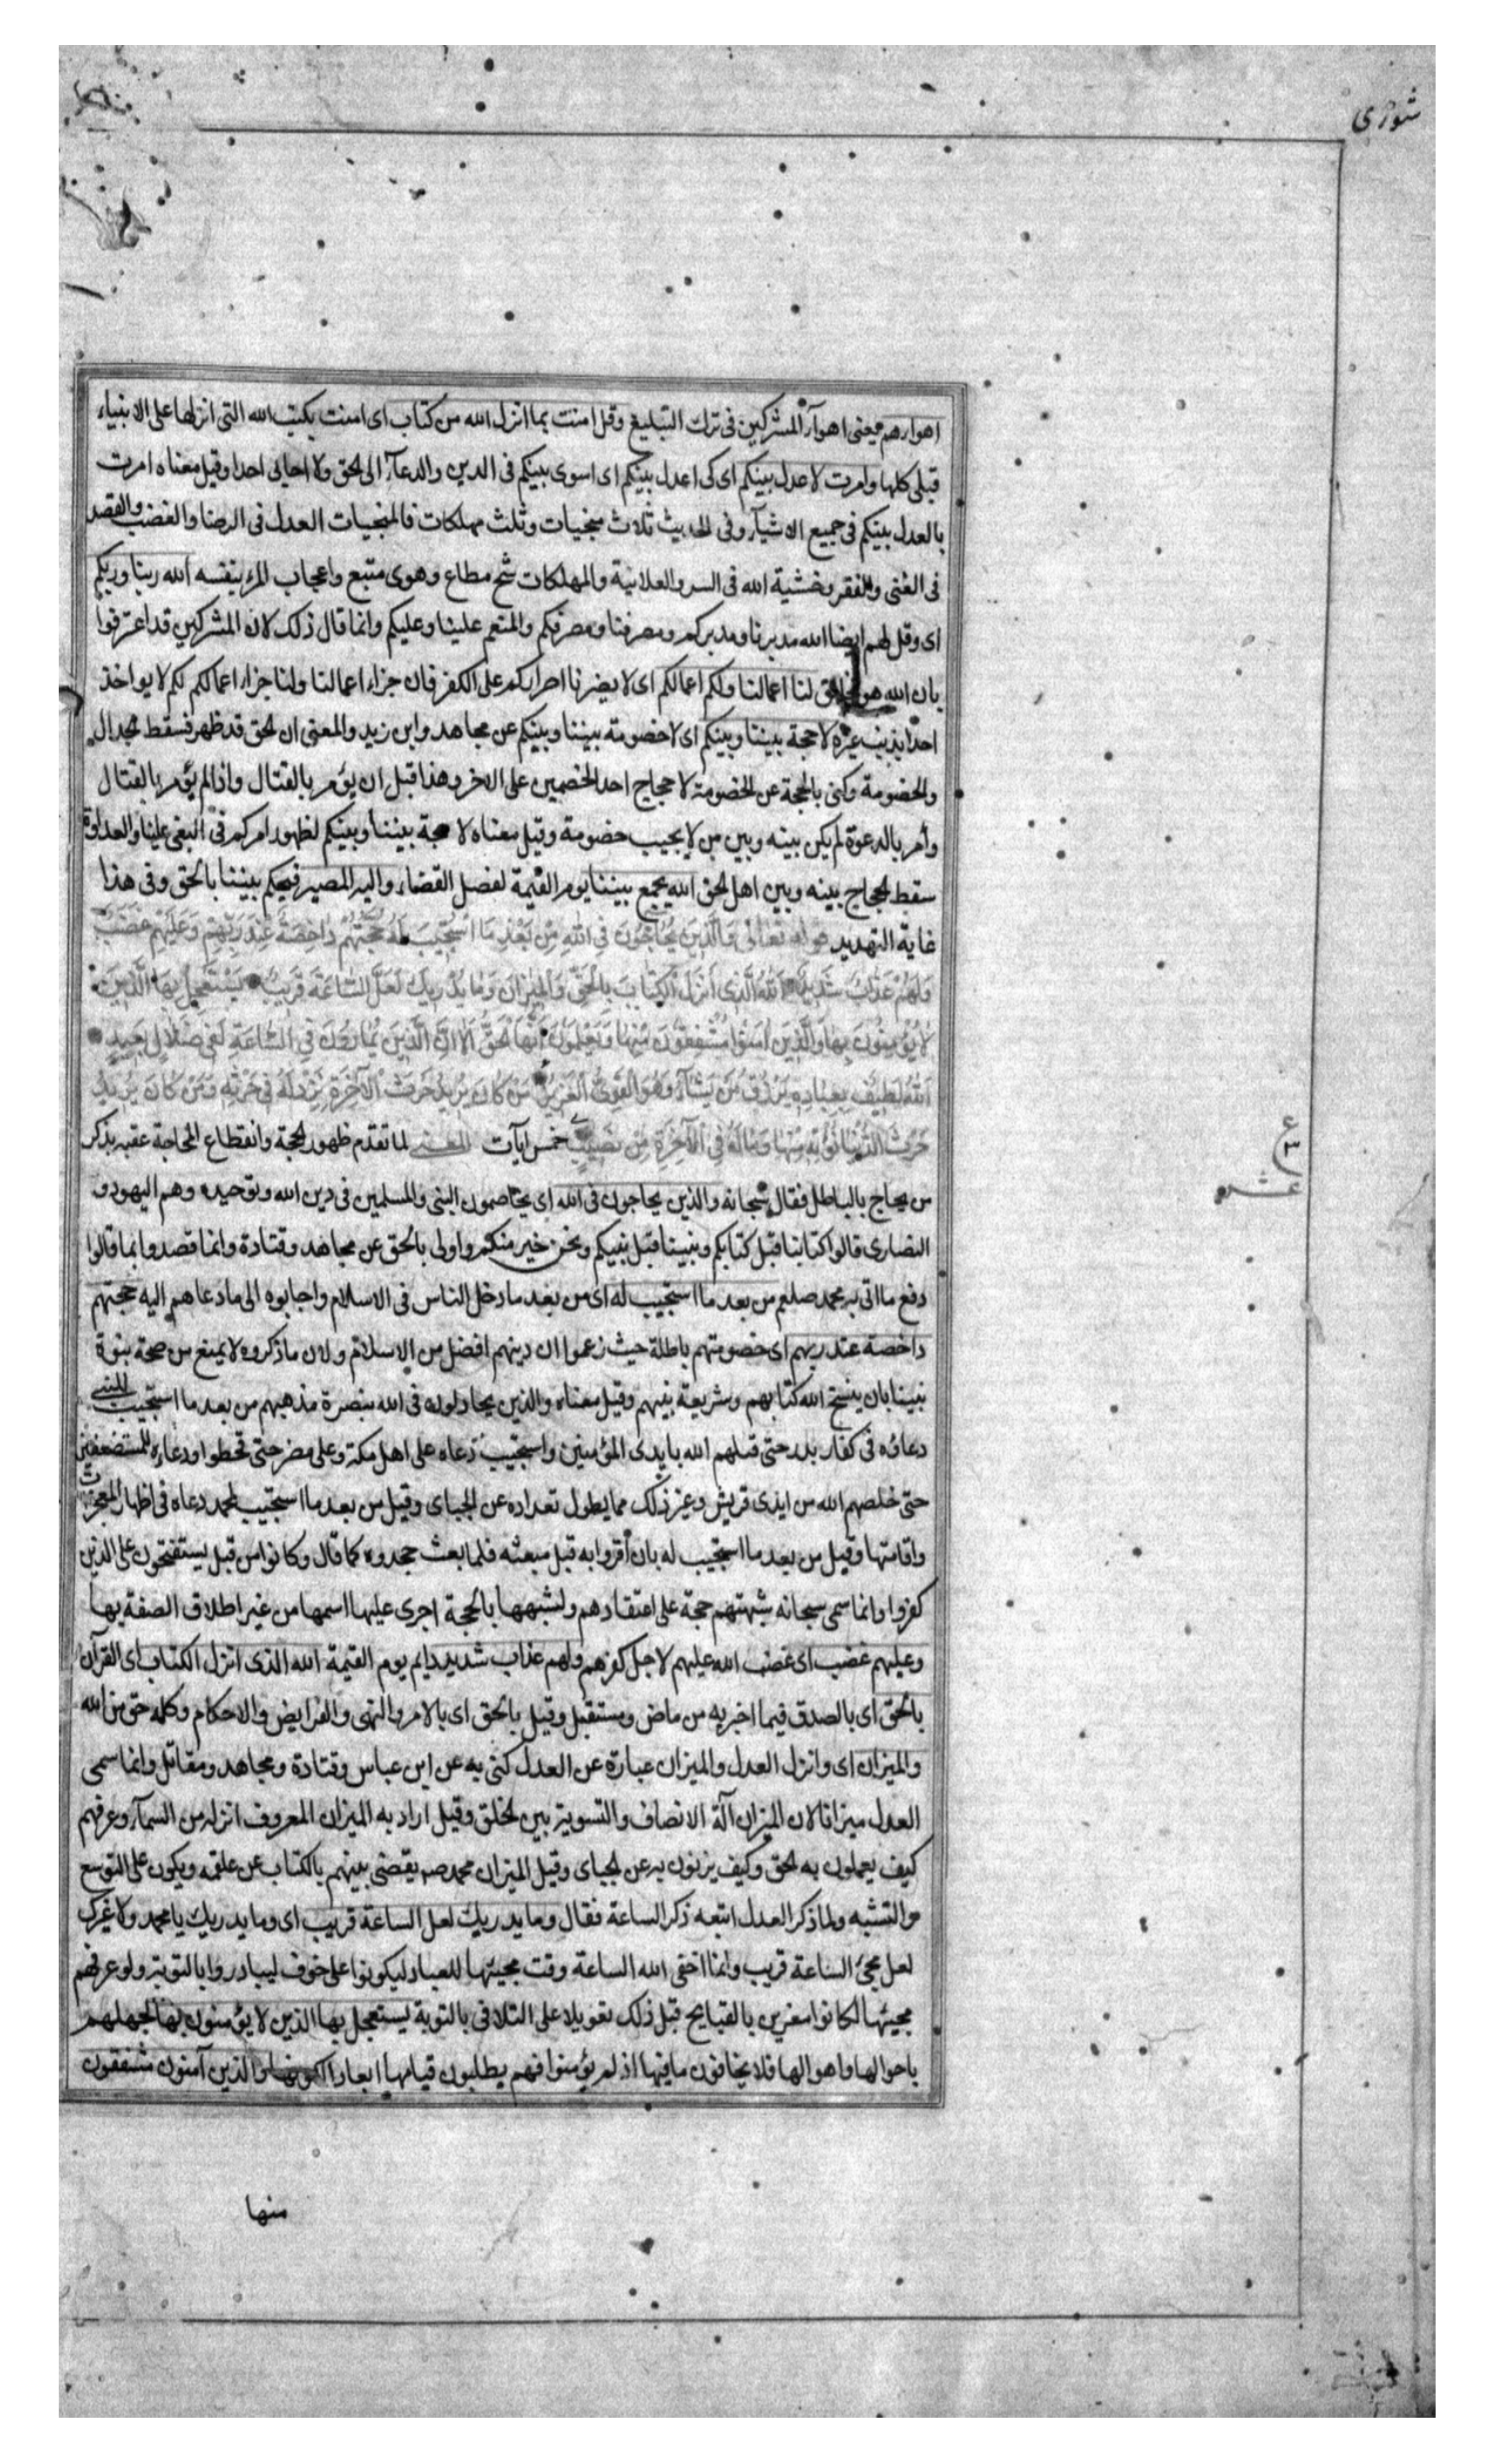 شورى
اهواءهم يعنى اهوآء المشركين فى ترك التبليغ وقل امنت بما انزل الله من كتاب اى امنت بكتب الله التى انزلها على الانبياء
قبلى كلها وامرت لاعدل بينكم اى كى اعدل بينكم اى اسوى بينكم فى الدين والدعآء الى الحق ولا احابى احدا وقيل معناه امرت
بالعدل بينكم فى جميع الاشيآء وفى الحديث ثلاث منجيات وثلث مهلكات فالمنجيات العدل فى الرضا والغضب والقصد
فى الغنى والفقر وخشية الله فى السر والعلانية والمهلكات شح مطاع وهوى متبع واعجاب المرء بنفسه الله ربنا وربكم
اى وقل لهم ايضا الله مدبرنا ومدبركم ومصرفنا ومصرفكم والمنعم علينا وعليكم وانما قال ذلك لان المشركين قد اعترفوا
بان الله هو الخالق لنا اعمالنا ولكم اعمالكم اى لا يضرنا اصراركم على الكفر فان جزاء اعمالنا ولنا جزاء اعمالكم لكم لا يواخذ
احد بذنب غيره لا حجة بيننا وبينكم اى لا خصومة بيننا وبينكم عن مجاهد وابن زيد والمعنى ان الحق قد ظهر فسقط الجدال
والخصومة وكنى بالحجة عن الخصومة لاحجاج احد الخصمين على الاخر وهذا قبل ان يؤمر بالقتال واذا لم يؤمر بالقتال
وأمر بالدعوة لم يكن بينه وبين من لا يجيب خصومة وقيل معناه لا حجة بيننا وبينكم لظهور امركم فى البغى علينا والعداوة
سقط الحجاج بينه وبين اهل الحق الله يجمع بيننا يوم القيمة لفصل القضاء واليه المصير فيحكم بيننا بالحق وفى هذا
غاية التهديد قوله تعالى وَالَّذِينَ يُحَاجُّونَ فِى اللهِ مِنْ بَعْدِ مَا اسْتُجِيبَ لَهُ حُجَّتُهُمْ دَاحِضَةٌ عِنْدَ رَبِّهِمْ وَعَلَيْهِمْ غَضَبٌ
وَلَهُمْ عَذَابٌ شَدِيدٌ اَللهُ الَّذِى اَنْزَلَ الْكِتَابَ بِالْحَقِّ وَالْمِيزَانَ وَمَا يُدْرِيكَ لَعَلَّ السَّاعَةَ قَرِيبٌ يَسْتَعْجِلُ بِهَا الَّذِينَ
لَا يُؤْمِنُونَ بِهَا وَالَّذِينَ اٰمَنُوا مُشْفِقُونَ مِنْهَا وَيَعْلَمُونَ اَنَّهَا الْحَقُّ اَلَا اِنَّ الَّذِينَ يُمَارُونَ فِى السَّاعَةِ لَفِى ضَلَالٍ بَعِيدٍ
اَللهُ لَطِيفٌ بِعِبَادِهِ يَرْزُقُ مَنْ يَشَآءُ وَهُوَ الْقَوِىُّ الْعَزِيزُ مَنْ كَانَ يُرِيدُ حَرْثَ الْاٰخِرَةِ نَزِدْ لَهُ فِى حَرْثِهِ وَمَنْ كَانَ يُرِيدُ
حَرْثَ الدُّنْيَا نُؤْتِهِ مِنْهَا وَمَا لَهُ فِى الْاٰخِرَةِ مِنْ نَصِيبٍ خمس ايآت المعنى لما تقدم ظهور الحجة وانقطاع المحاجة عقبه بذكر
من يحاج بالباطل فقال سبحانه والذين يحاجون فى الله اى يخاصمون النبى والمسلمين فى دين الله وتوحيده وهم اليهود و
النصارى قالوا كتابنا قبل كتابكم ونبينا قبل نبيكم ونحن خير منكم واولى بالحق عن مجاهد وقتادة وانما قصدوا بما قالوا
دفع ما اتى به محمد صلعم من بعد ما استجيب له اى من بعد ما دخل الناس فى الاسلام واجابوه الى ما دعاهم اليه حجتهم
داحضة عند ربهم اى خصومتهم باطلة حيث زعموا ان دينهم افضل من الاسلام ولان ما ذكروه لا يمنع من صحة نبوة
نبينا بان ينسخ الله كتابهم وشريعة نبيهم وقيل معناه والذين يجادلون فى الله بنصرة مذهبهم من بعد ما استجيب للنبى
دعاؤه فى كفار بدر حتى قتلهم الله بايدى المؤمنين واستجيب دعاه على اهل مكة وعلى مضر حتى قحطوا ودعاءه للمستضعفين
حتى خلصهم الله من ايدى قريش وغير ذلك مما يطول تعداده عن الجباى وقيل من بعد ما استجيب لمحمد دعاه فى اظهار المعجزات
واقامتها وقيل من بعد ما استجيب له بان اقروا به قبل مبعثه فلما بعث جحدوه كما قال وكانوا من قبل يستفتحون على الذين
كفروا وانما سمى سبحانه شبهتهم حجة على اعتقادهم ولشبهها بالحجة اجرى عليها اسمها من غير اطلاق الصفة بها
وعليهم غضب اى غضب الله عليهم لاجل كفرهم ولهم عذاب شديد دايم يوم القيمة الله الذى انزل الكتاب اى القرآن
بالحق اى بالصدق فيما اخبر به من ماض ومستقبل وقيل بالحق اى بالامر والنهى والفرايض والاحكام وكله حق من الله
والميزان اى وانزل العدل والميزان عبارة عن العدل كنى به عن ابن عباس وقتادة ومجاهد ومقاتل وانما سمى
العدل ميزانا لان الميزان آلة الانصاف والتسوية بين الخلق وقيل اراد به الميزان المعروف انزله من السمآء وعرفهم
كيف يعملون به الحق وكيف يزنون به عن الجباى وقيل الميزان محمد صم يقضى بينهم بالكتاب عن علقمه ويكون على التوسع
والتشبه ولما ذكر العدل اتبعه ذكر الساعة فقال وما يدريك لعل الساعة قريب اى وما يدريك يا محمد ولا غيرك
لعل مجئ الساعة قريب وانما اخفى الله الساعة وقت مجيئها للعباد ليكونوا على خوف ليبادروا بالتوبة ولو عرفهم
مجيئها لكانوا مغرين بالقبايح قبل ذلك تعويلا على التلافى بالتوبة يستعجل بها الذين لا يؤمنون بها لجهلهم
باحوالها واهوالها فلا يخافون ما فيها اذ لم يؤمنوا فهم يطلبون قيامها ابعادا لكونها والذين آمنون مشفقون
منها